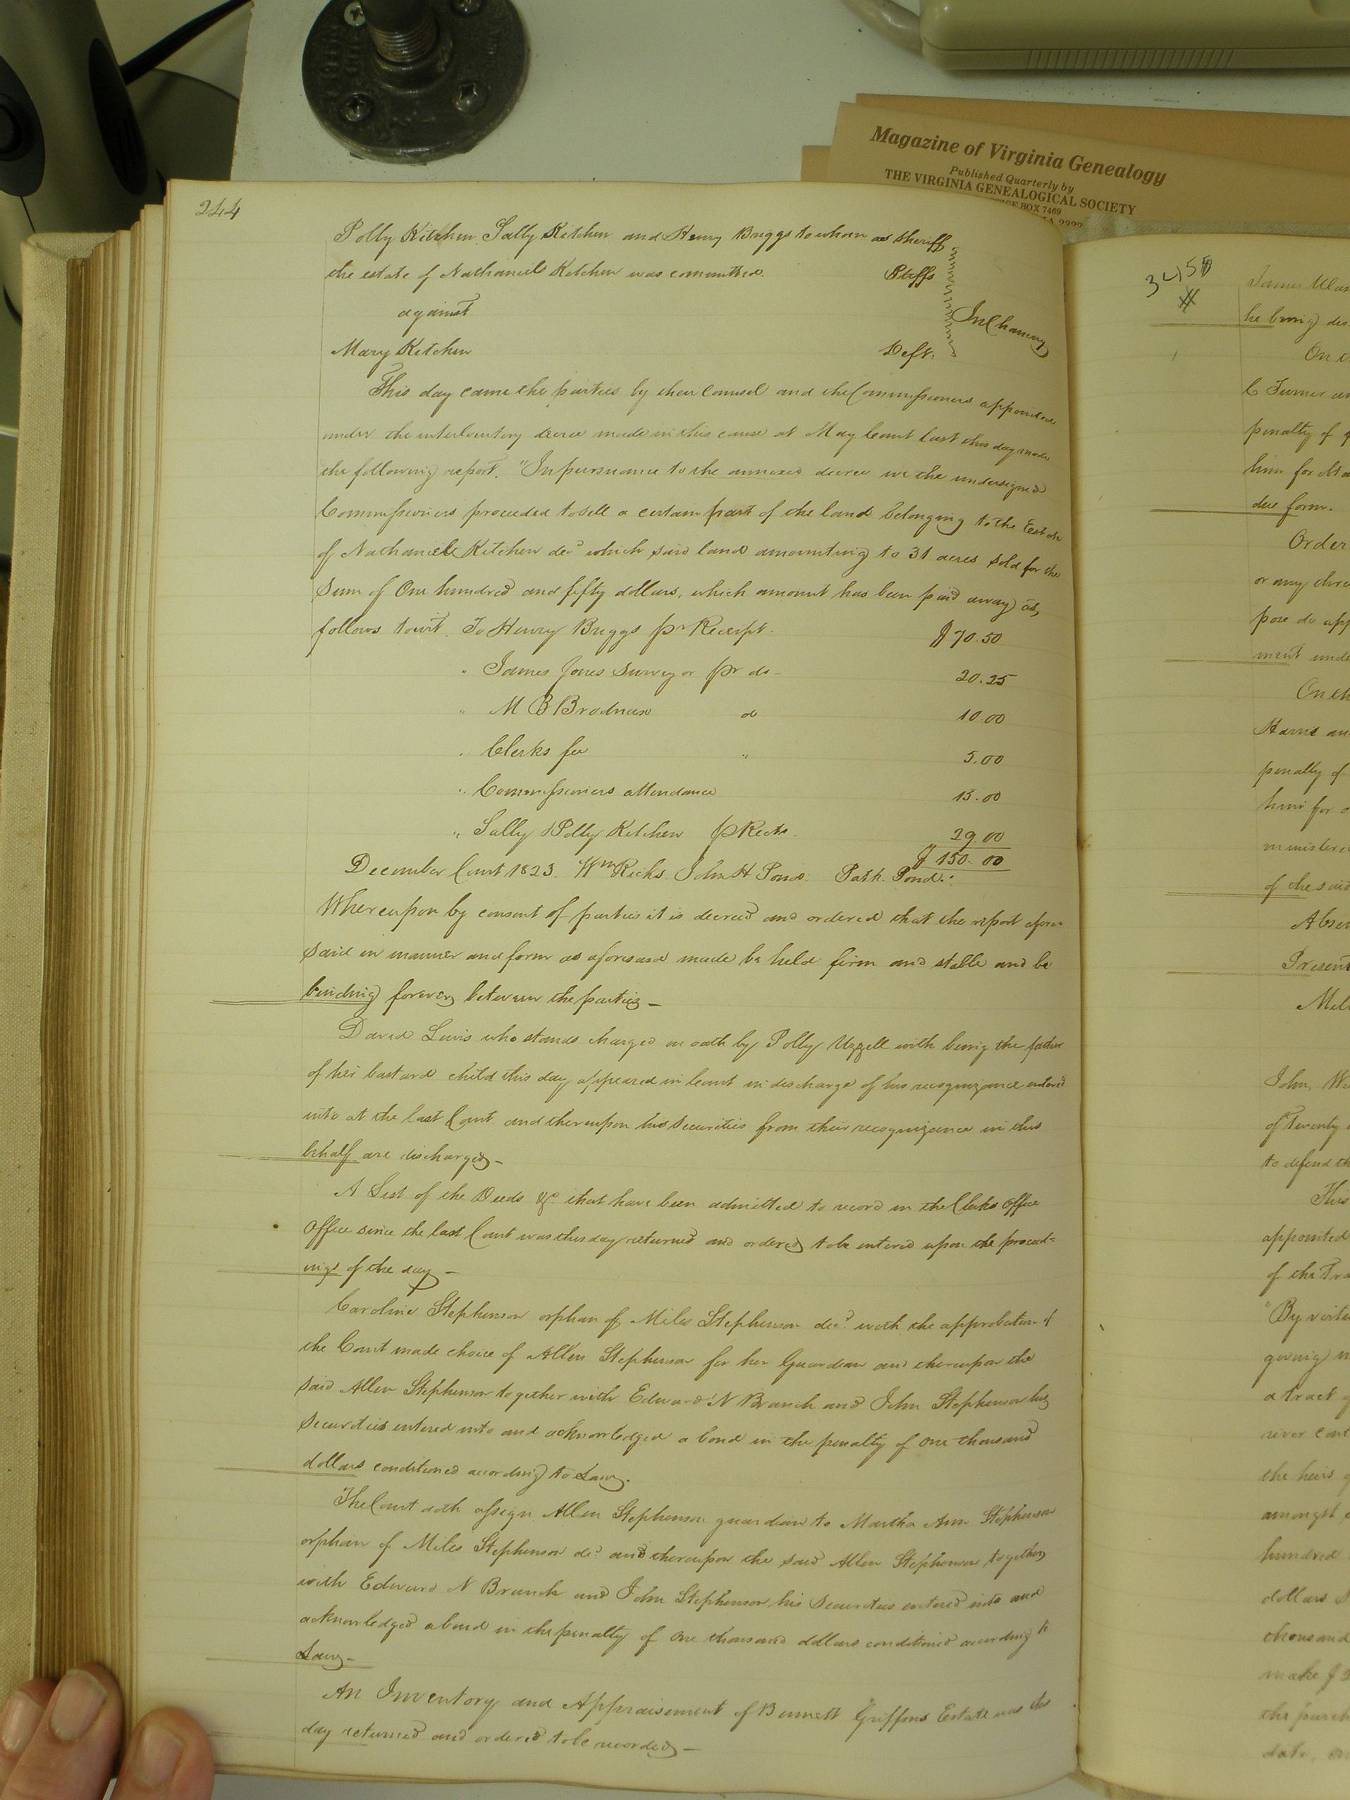 Magazine of Virginia Genealogy
Published Quarterly by
THE VIRGINIA GENEALOGICAL SOCIETY
BOX 7469
244
Polly Kitchen, Sally Kitchen and Henry Briggs to whom as Sheriff
the estate of Nathaniel Kitchen was committed Pltffs
against In Chancery
Mary Kitchen Deft.
This day came the parties by their Counsel and the Commissioners appointed
under the interlocutory decree made in this cause at May Court last this day made
the following report. "In pursuance to the annexed decree we the undersigned
Commissioners proceeded to sell a certain part of the land belonging to the Estate
of Nathaniel Kitchen decd which said land amounting to 31 acres sold for the
Sum of One hundred and fifty dollars, which amount has been paid away as
follows towit. To Henry Briggs pr Receipt. $70.50
" James Jones Surveyor pr do - 20.25
" M B Brodnax do 10.00
" Clerks fee " 5.00
" Commissioners attendance 15.00
" Sally & Polly Kitchen p Rects. 29.00
$150.00
December Court 1823. Wm Ricks John H Pond. Path. Pond."
Whereupon by consent of parties it is decreed and ordered that the report afore-
said in manner and form as aforesaid made be held firm and stable and be
binding forever between the parties -
David Lewis who stands charged on oath by Polly Uzzell with being the father
of her bastard child this day appeared in Court in discharge of his recognizance entered
into at the last Court and thereupon his securities from their recognizance in this
behalf are discharged -
A List of the Deeds &c. that have been admitted to record in the Clerks Office
Office since the last Court was this day returned and ordered to be entered upon the proceed=
ings of the day -
Caroline Stephenson orphan of Miles Stephenson decd. with the approbation of
the Court made choice of Allen Stephenson for her Guardian and thereupon the
said Allen Stephenson together with Edward N Branch and John Stephenson his
Securities entered into and acknowledged a bond in the penalty of one thousand
dollars conditioned according to Law.
The Court doth assign Allen Stephenson guardian to Martha Ann Stephenson
orphan of Miles Stephenson decd. and thereupon the said Allen Stephenson together
with Edward N Branch and John Stephenson his Securities entered into and
acknowledged a bond in the penalty of one thousand dollars conditioned according to
Law -
An Inventory and Appraisement of Bennett Griffins Estate was this
day returned and ordered to be recorded -
James
he being des
On
C Turner an
penalty of
him for
due form.
Order
or any three
pose do app
ment unde
On the
Harris an
penalty of
him for
of the said
Absen
Present
John, Wi
of Twenty
to defend th
This
appointed
of the
"By virtue
giving
a tract
the heirs
amongst
hundred
dollars
thousand
make
the purch
date,